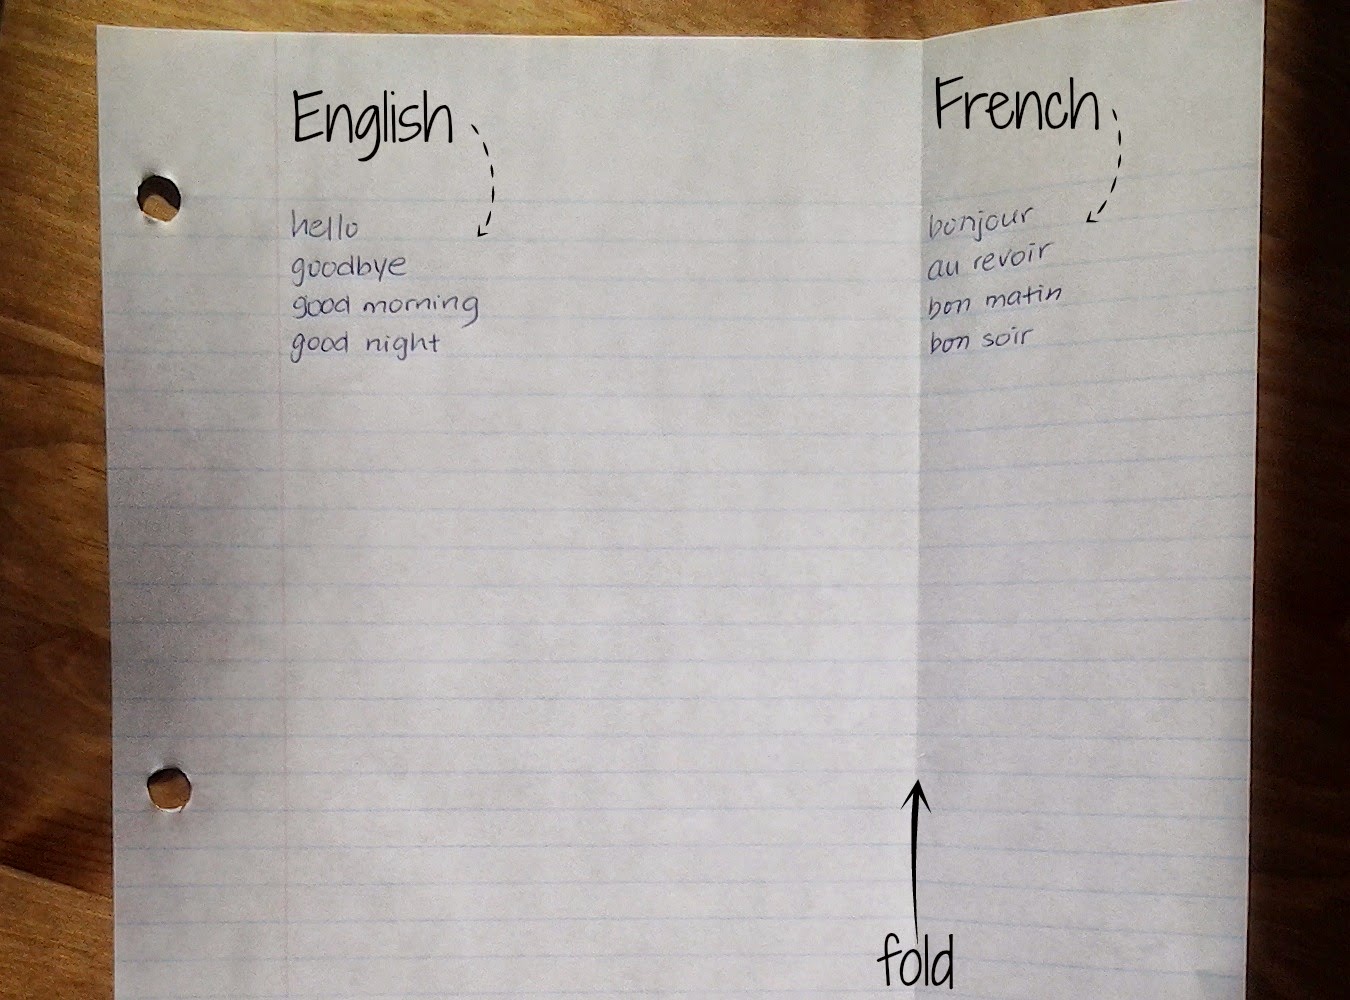 English
French
hello
goodbye
good morning
good night
bonjour
au revoir
bon matin
bon soir
fold